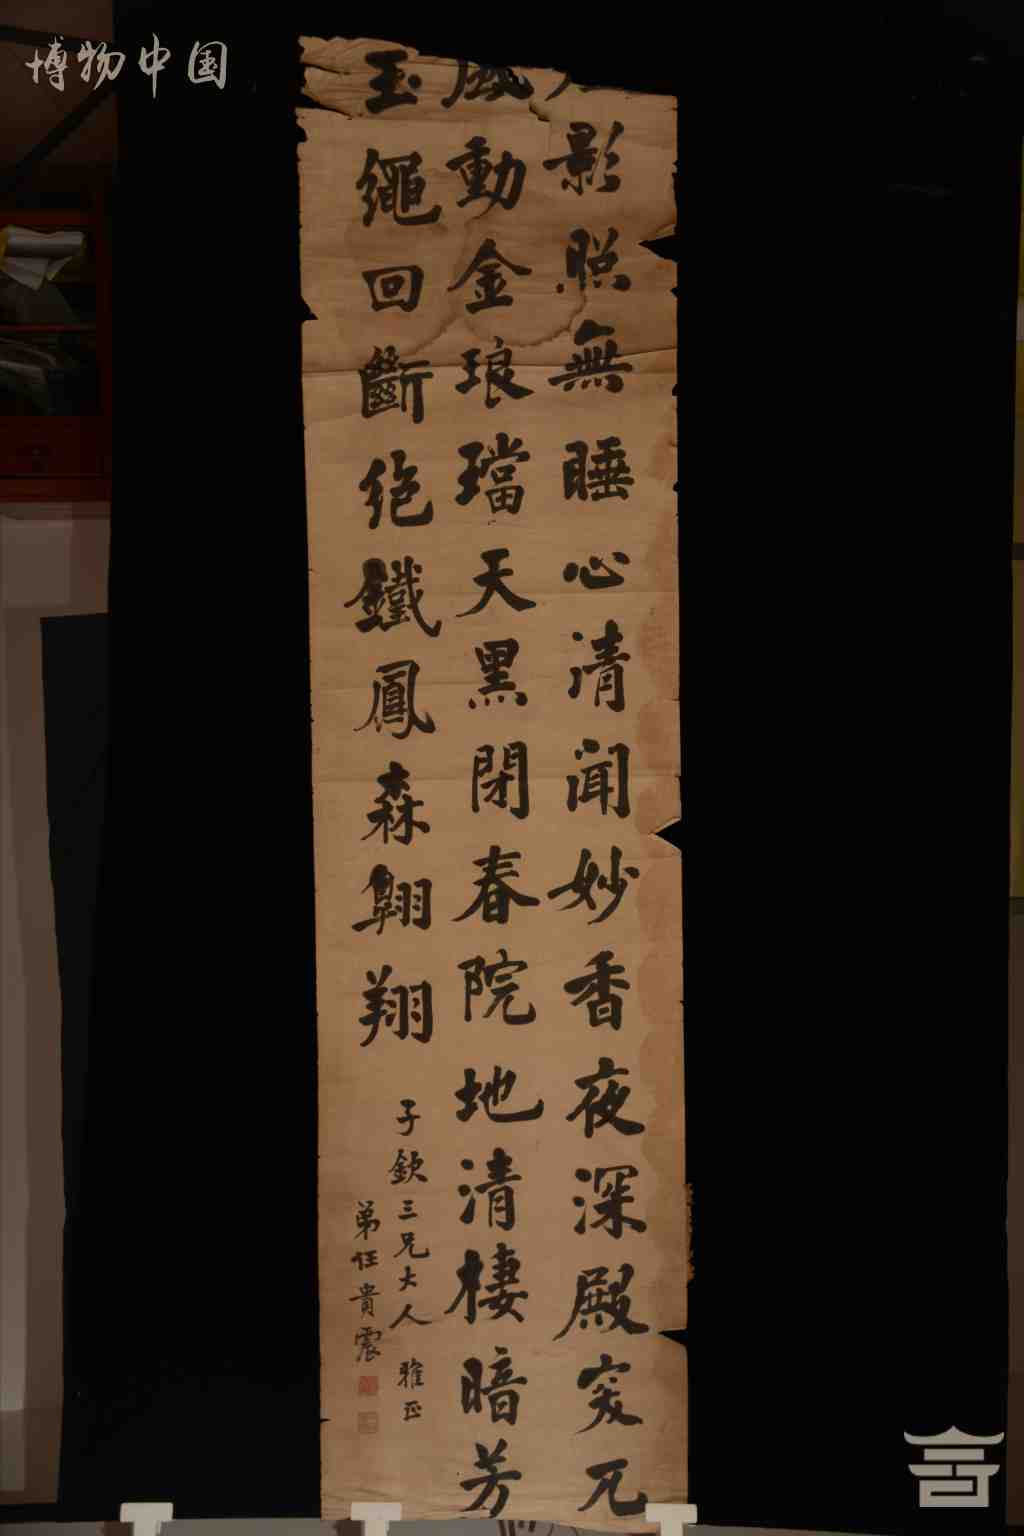 影照無睡心清聞妙香夜深殿突兀
風動金琅璫天黑閉春院地清棲暗芳
玉繩回斷絶鐵鳳森翱翔
子欽三兄大人 雅正
弟任貴震
博物中国